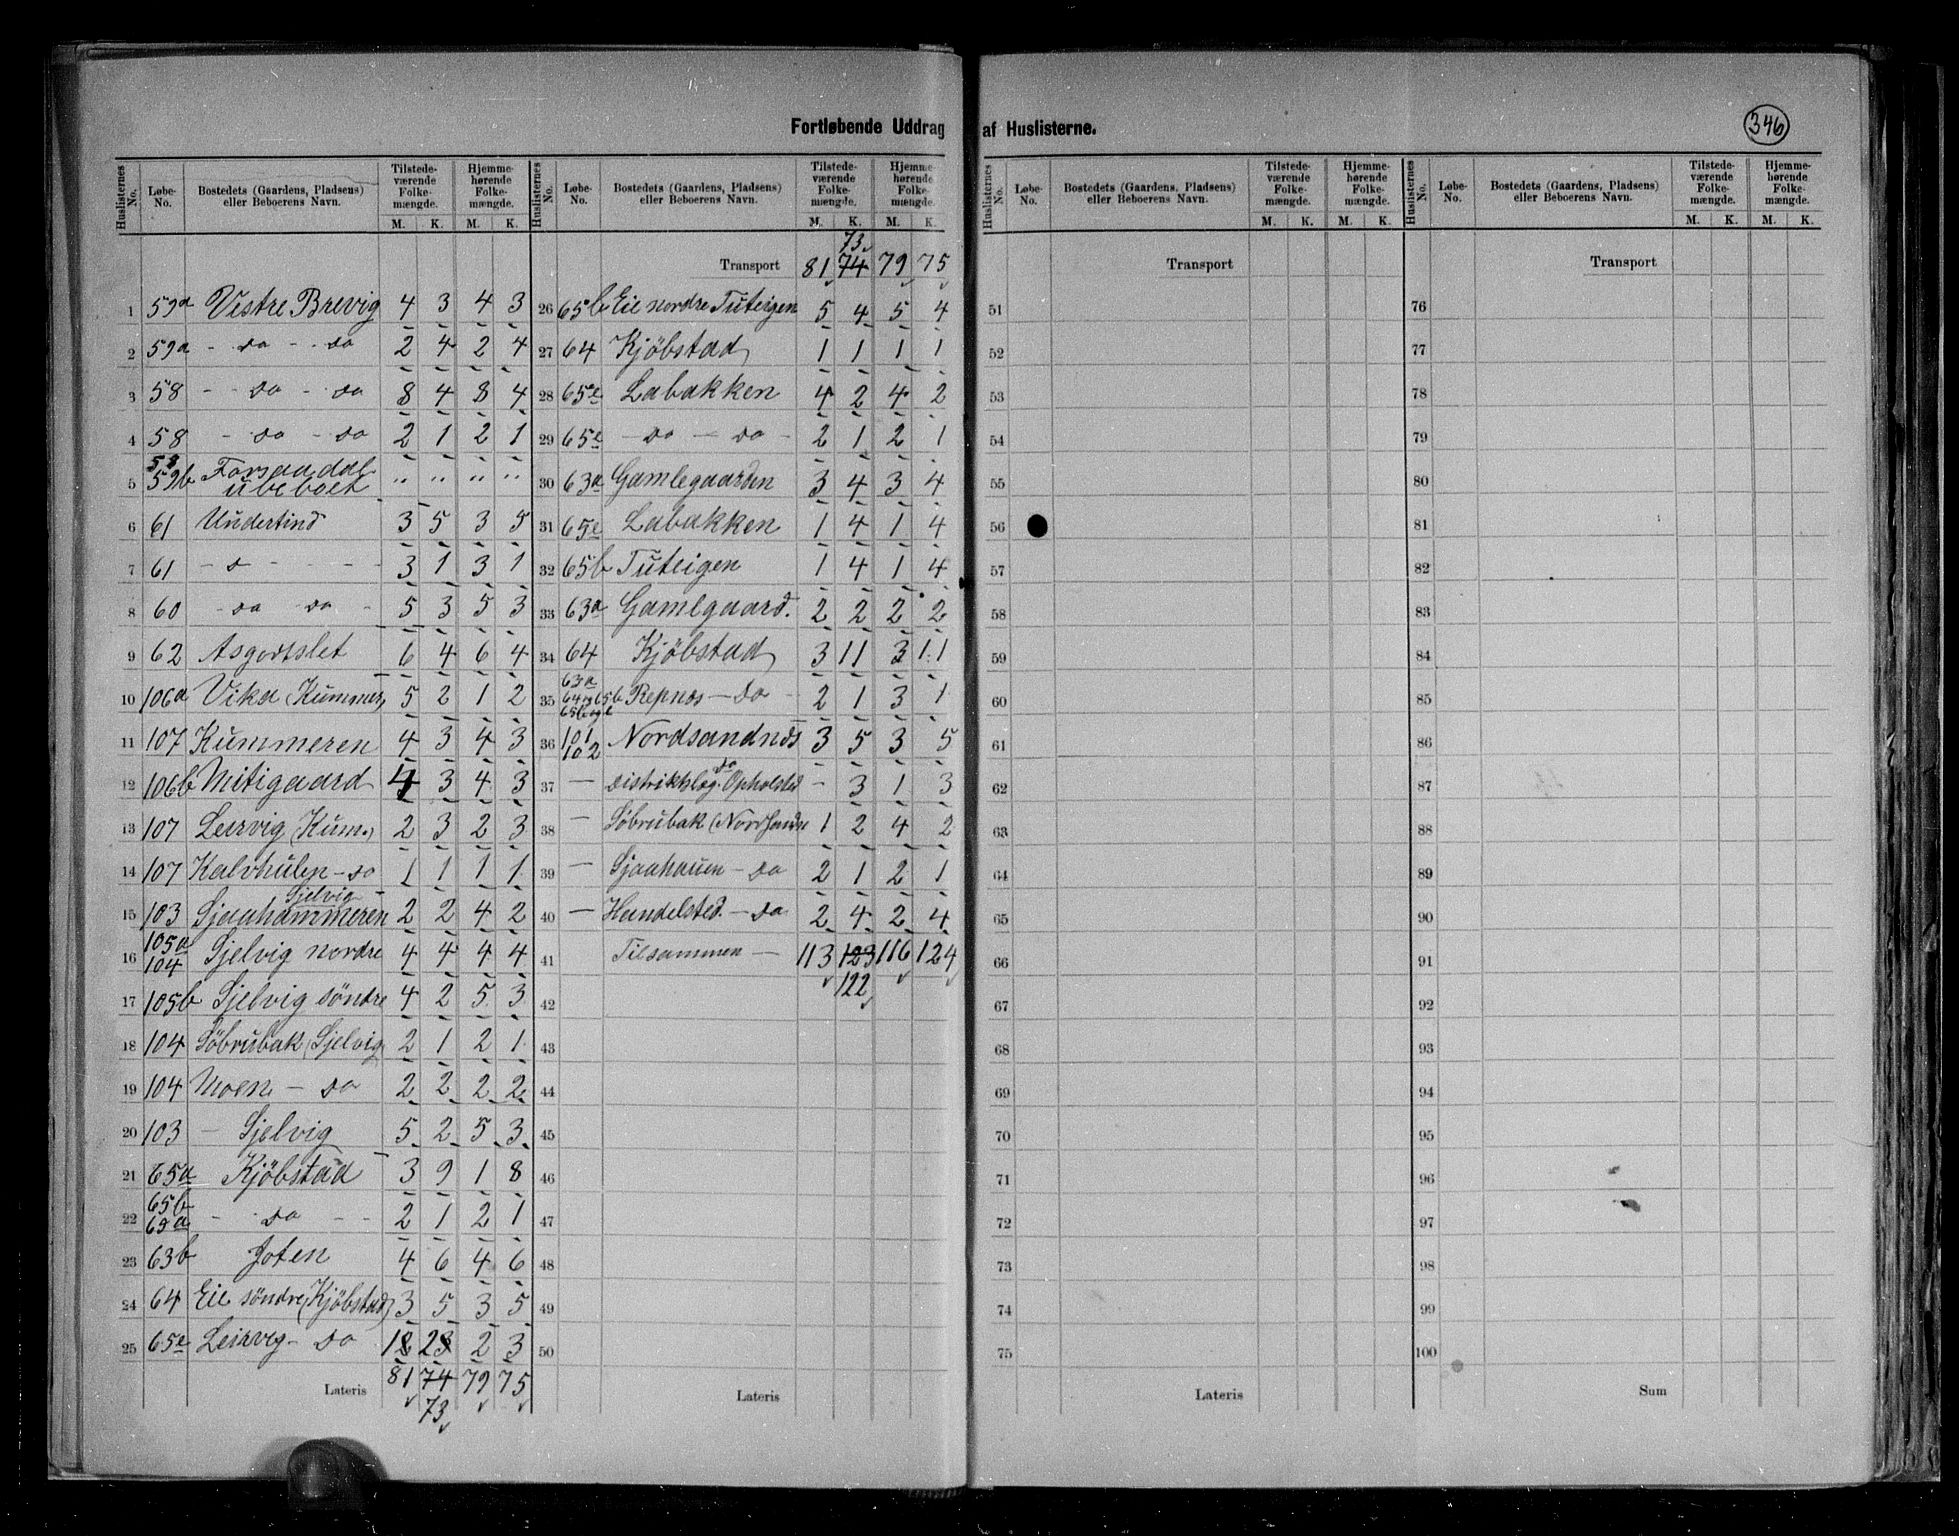 Fortløbende Uddrag af Huslisterne.
346
Huslisternes No. | Løbe-No. | Bostedets (Gaardens, Pladsens) eller Beboerens Navn. | Tilstedeværende Folkemængde. M. K. | Hjemmehørende Folkemængde. M. K.
1 59a Vestre Brevig 4 3 4 3
2 59a - do - do 2 4 2 4
3 58 - do - do 8 4 8 4
4 58 - do - do 2 1 2 1
5 58 59b Forsaadal ubeboet " " " "
6 61 Undertind 3 5 3 5
7 61 - d - - - 3 1 3 1
8 60 - do do - 5 3 5 3
9 62 Asgortslet 6 4 6 4
10 106a Vika (Kummer) 5 2 1 2
11 107 Kummeren 4 3 4 3
12 106b Mitigaard 4 3 4 3
13 107 Leirvig (Kum.) 2 3 2 3
14 107 Kalvhulen - do 1 1 1 1
15 103 Sjaahammeren Sjelvig 2 2 4 2
16 105a 104 Sjelvig nordre 4 4 4 4
17 105b Sjelvig söndre 4 2 5 3
18 104 Söbrubak (Sjelvig 2 1 2 1
19 104 Moen - do 2 2 2 2
20 103 - Sjelvig 5 2 5 3
21 65a Kjöbstad 3 9 1 8
22 65b - do - - 2 1 2 1
23 63b Joten 4 6 4 6
24 64 Eie söndre (Kjöbstad) 3 5 3 5
25 65e Leirvig - do 2 3
Lateris 81 74 79 75
73
Huslisternes No. | Løbe-No. | Bostedets (Gaardens, Pladsens) eller Beboerens Navn. | Tilstedeværende Folkemængde. M. K. | Hjemmehørende Folkemængde. M. K.
73
Transport 81 74 79 75
26 65b Eie nordre Tuteigen 5 4 5 4
27 64 Kjöbstad 1 1 1 1
28 65e Labakken 4 2 4 2
29 65e - do - do - 2 1 2 1
30 63a Gamlegaarden 3 4 3 4
31 65e Labakken 1 4 1 4
32 65b Tuteigen 1 4 1 4
33 63a Gamlgaard. 2 2 2 2
34 64 Kjöbstad 3 11 3 11
35 63a Repnes - do - 2 1 3 1
36 101 102 Nordsandnes 3 5 3 5
37 - Distriktslæg. do Opholsted - 3 1 3
38 - Söbrubak (Nordsandn 1 2 4 2
39 - Sjaahauen - do 2 1 2 1
40 - Handelsted. - do 2 4 2 4
41 Tilsammen - 113 123 116 124
122
42
43
44
45
46
47
48
49
50
Lateris
Huslisternes No. | Løbe-No. | Bostedets (Gaardens, Pladsens) eller Beboerens Navn. | Tilstedeværende Folkemængde. M. K. | Hjemmehørende Folkemængde. M. K.
Transport
51
52
53
54
55
56
57
58
59
60
61
62
63
64
65
66
67
68
69
70
71
72
73
74
75
Lateris
Huslisternes No. | Løbe-No. | Bostedets (Gaardens, Pladsens) eller Beboerens Navn. | Tilstedeværende Folkemængde. M. K. | Hjemmehørende Folkemængde. M. K.
Transport
76
77
78
79
80
81
82
83
84
85
86
87
88
89
90
91
92
93
94
95
96
97
98
99
100
Sum